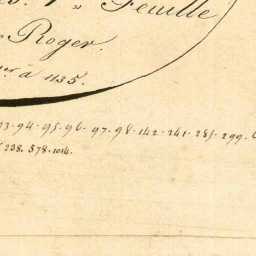 Feuille
Roger.
à 1135.
93. 94. 95. 96. 97. 98. 142. 241. 285. 299.
238. 578. 1014.